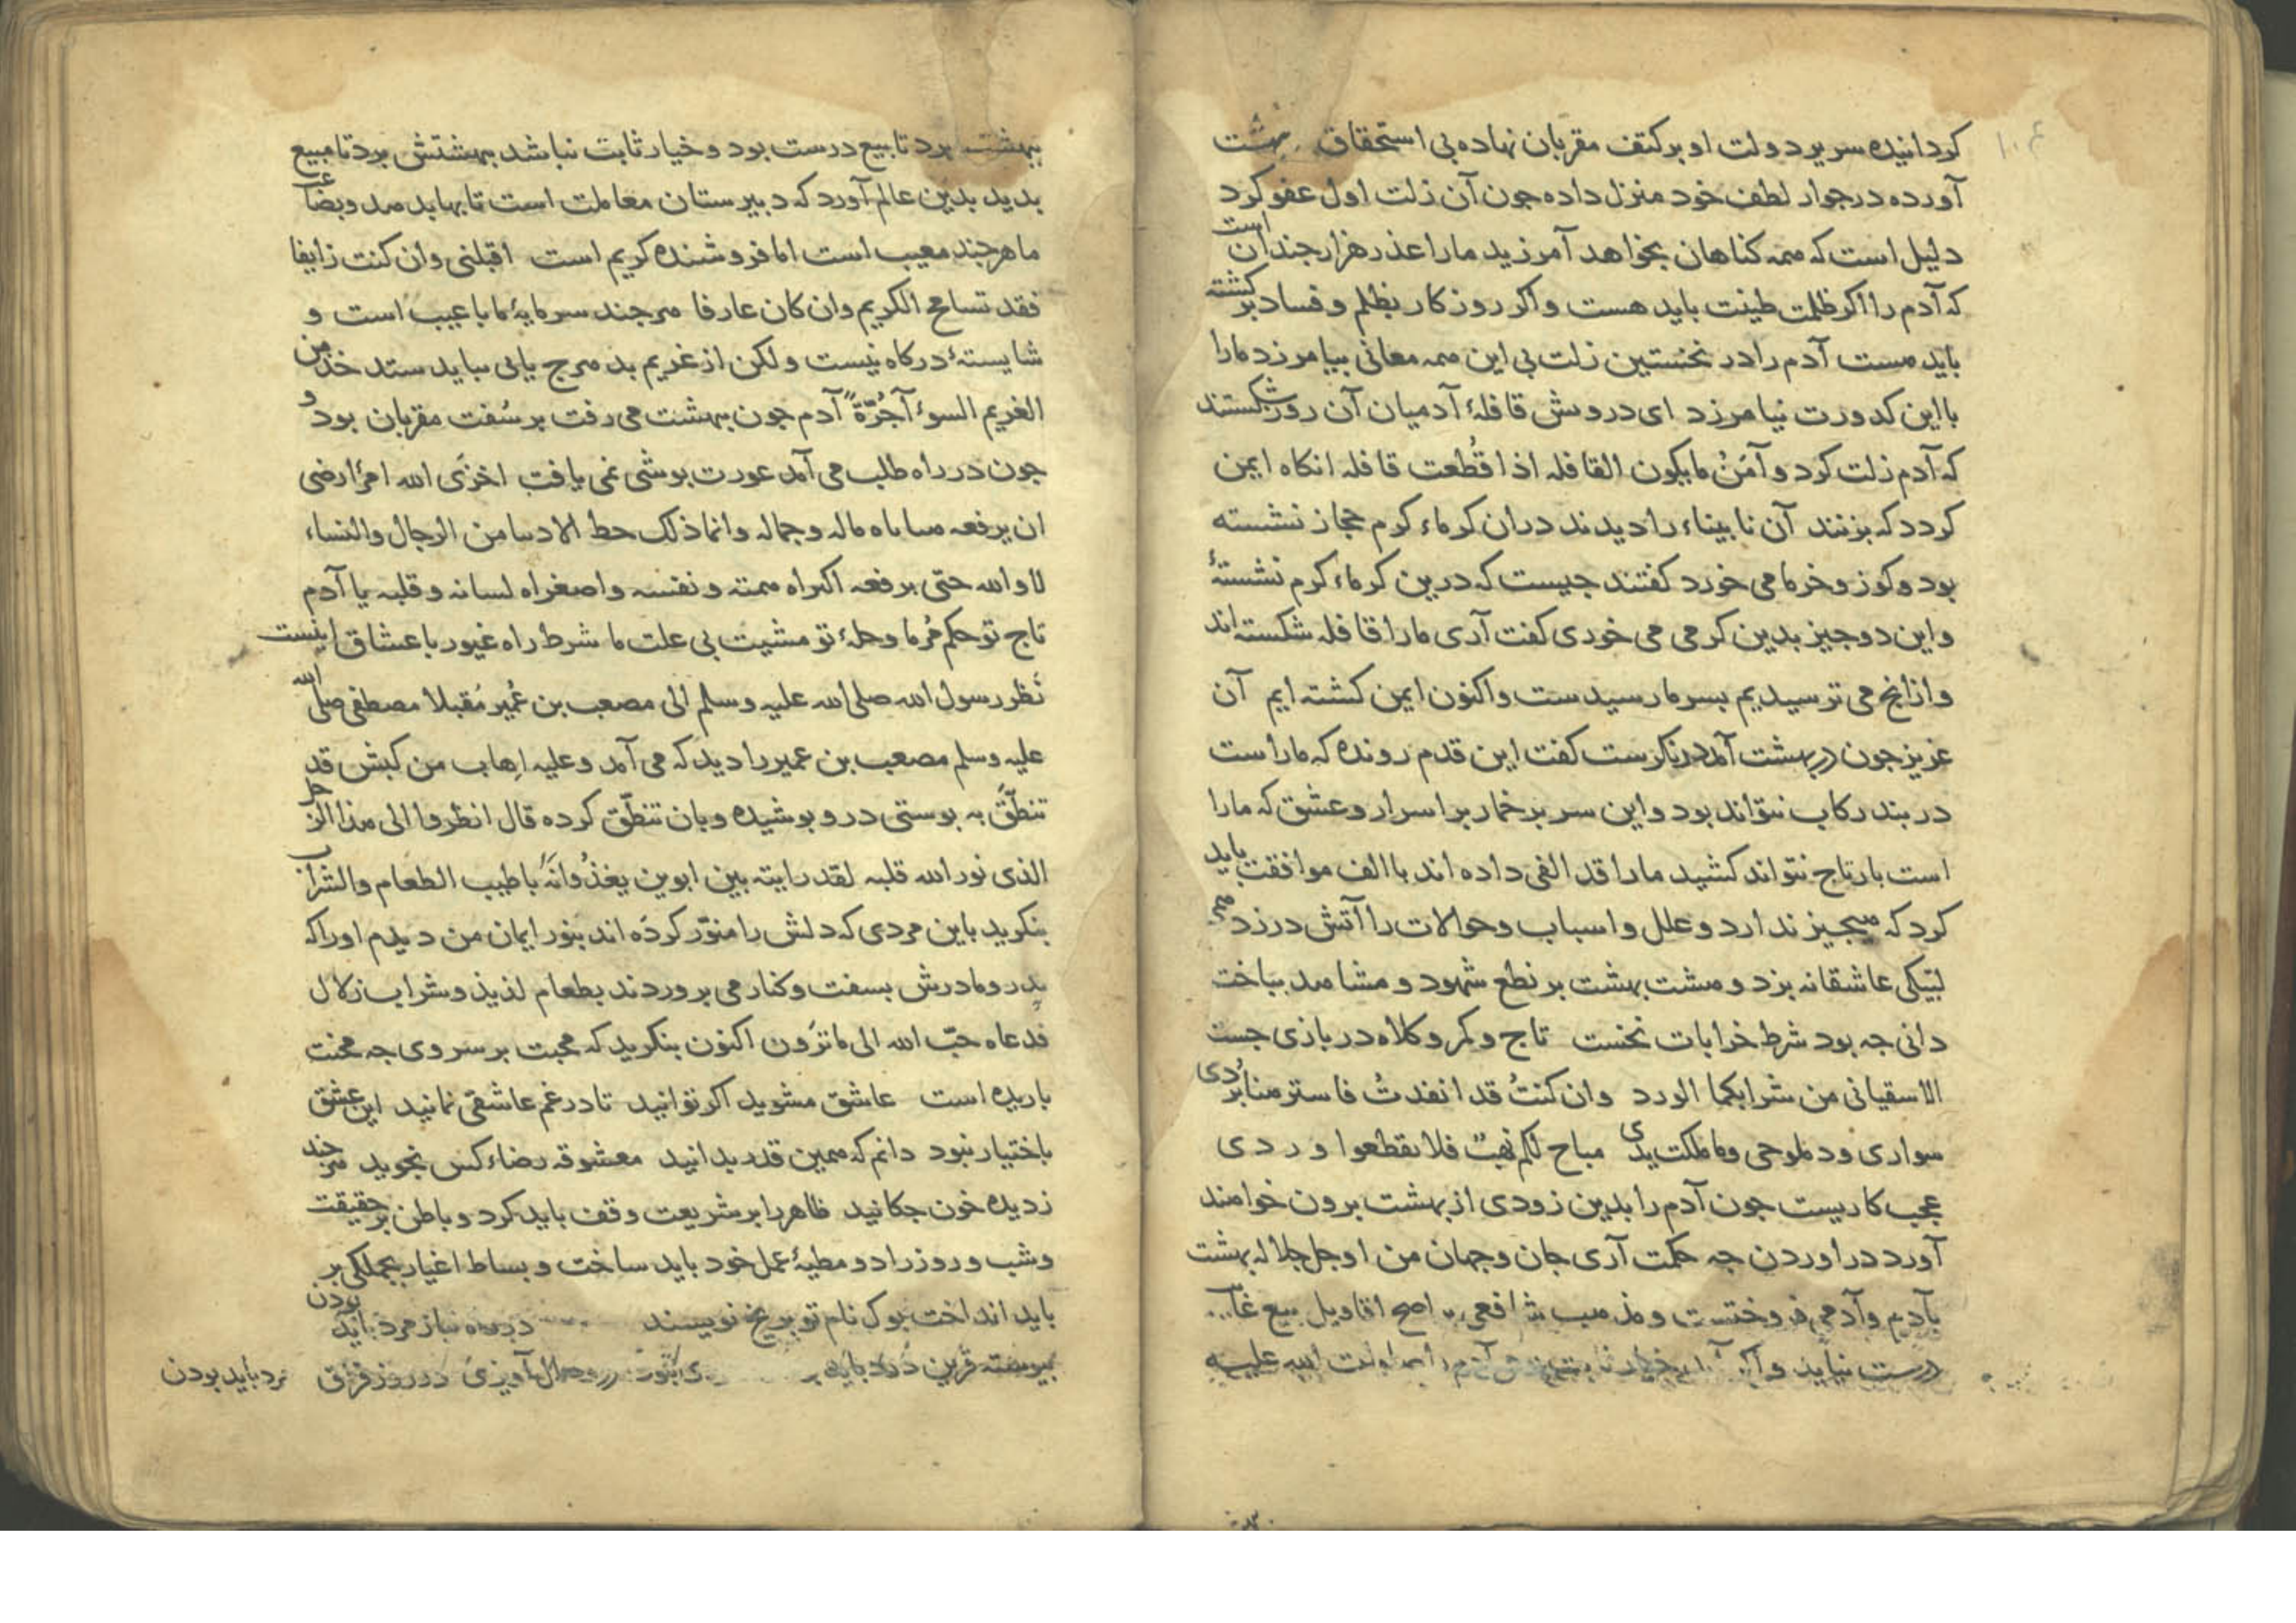 کردانیده سریر دولت او بر کتف مقربان نهاده بی استحقاق بهشت
آورده در جوار لطف خود منزل داده جون آن زلت اول عفو کرد
دلیل است که همه کناهان بخواهد آمرزید ما را عذر هزار جندان است
که آدم را اکر ظلمت طینت باید هست و اکر روز کار بظلم و فساد بر کشته
باید هست آدم را در نخستین زلت بی این همه معانی بیامرزد ما را
با این کدورت نیامرزد ای درویش قافلهٔ آدمیان آن روز شکستند
که آدم زلت کرد و آمَنُ ما یکون القافله اذا قُطعت قافله انکاه ایمن
کردد که بزنند آن نابیناء را دیدند دران کرماء کرم حجاز نشسته
بود و کوز و خرما می خورد کفتند جیست که درین کرماء کرم نشستهٔ
و این دو جیز بدین کرمی می خوری کفت آری ما را قافله شکسته اند
و ازانج می ترسیدیم بسر ما رسیدست و اکنون ایمن کشته ایم آن
عزیز جون در بهشت آمد درنکرست کفت این قدم رونده که ما راست
در بند رکاب نتواند بود و این سر بر خمار بر اسرار و عشق که ما را
است بار تاج نتواند کشید ما را قد الفی داده اند با الف موافقت باید
کرد که هیجیز ندارد و علل و اسباب و حوالات را آتش در زد همی
لبّیکی عاشقانه بزد و هشت بهشت بر نطع شهود و مشاهد بباخت
دانی جه بود شرط خرابات نخست تاج و کمر و کلاه در بازی جست
الا سقیانی من شرابکما الورد وان کنتُ قد انفدتُ فاسترهنا بُردی
سواری ودملوجی وما ملکت یدی مباح لکم نهبٌ فلا تقطعوا وردی
عجب کاریست جون آدم را بدین زودی از بهشت برون خواهند
آورد در اوردن جه حکمت آری جان و جهان من او جل جلاله بهشت
بآدم و آدمی فروختست و مذهب شافعی اصح اقاویل بیع
درست نیاید و
ببهشت برد تا بیع درست بود و خیار ثابت نباشد ببهشتش برد تا مبیع
بدید بدین عالم آورد که دبیرستان معاملت است تا بها بدهد و بضاعـ
ما هرجند معیب است اما فروشنده کریم است اقبلنی وان کنت زایفا
فقد تسامح الکریم وان کان عارفا هرجند سرمایهٔ ما با عیب است و
شایستهٔ درکاه نیست ولکن از غریم بد هرج یابی بباید ستد خذ من
الغریم السوء آجُرّةً آدم جون ببهشت می رفت بر سُفت مقربان بود و
جون در راه طلب می آمد عورت بوشی نمی یافت اخزی الله امرًا رضی
ان یرفعه ماله وجماله وانما ذلک حظ من الرجال والنساء
لا والله حتی یرفعه اکبراه همته ونفسه واصغراه لسانه وقلبه یا آدم
تاج تو حکم مُر ما و حلهٔ تو مشیت بی علت ما شرط راه غیور با عشاق اینست
نظر رسول الله صلی الله علیه وسلم الی مصعب بن عُمیر مُقبلا مصطفی صلی الله
علیه وسلم مصعب بن عمیر را دید که می آمد وعلیه اِهاب من کبش قد
تنطّق به بوستی در و بوشیده و بان تنطّق کرده قال انظروا الی هذا الرجل
الذی نور الله قلبه لقد رایته بین ابوین یغذُوانَهُ باطیب الطعام والشراب
بنکرید باین مردی که دلش را منوّر کرده اند بنور ایمان من دیدم او را که
بدر و مادرش بسفت و کنار می بروردند بطعام لذیذ و شراب زلال
فدعاه حبّ الله الی ما ترَون اکنون بنکرید که محبت بر سر وی جه محنت
باریده است عاشق مشوید اکر توانید تا در غم عاشقی نمانید این عشق
باختیار نبود دانم که همین قدر بدانید معشوقه رضاء کس نجوید هرجند
ز دیده خون جکانید ظاهر را بر شریعت وقف باید کرد و باطن بر حقیقت
و شب و روز را دو مطیهٔ عمل خود باید ساخت و بساط اغیار بجملکی بر
باید انداخت بوک نام تو بریخ نویسند نیاز مرد باید بودن
بیوسته قرین درد باید روز فرق مرد باید بودن